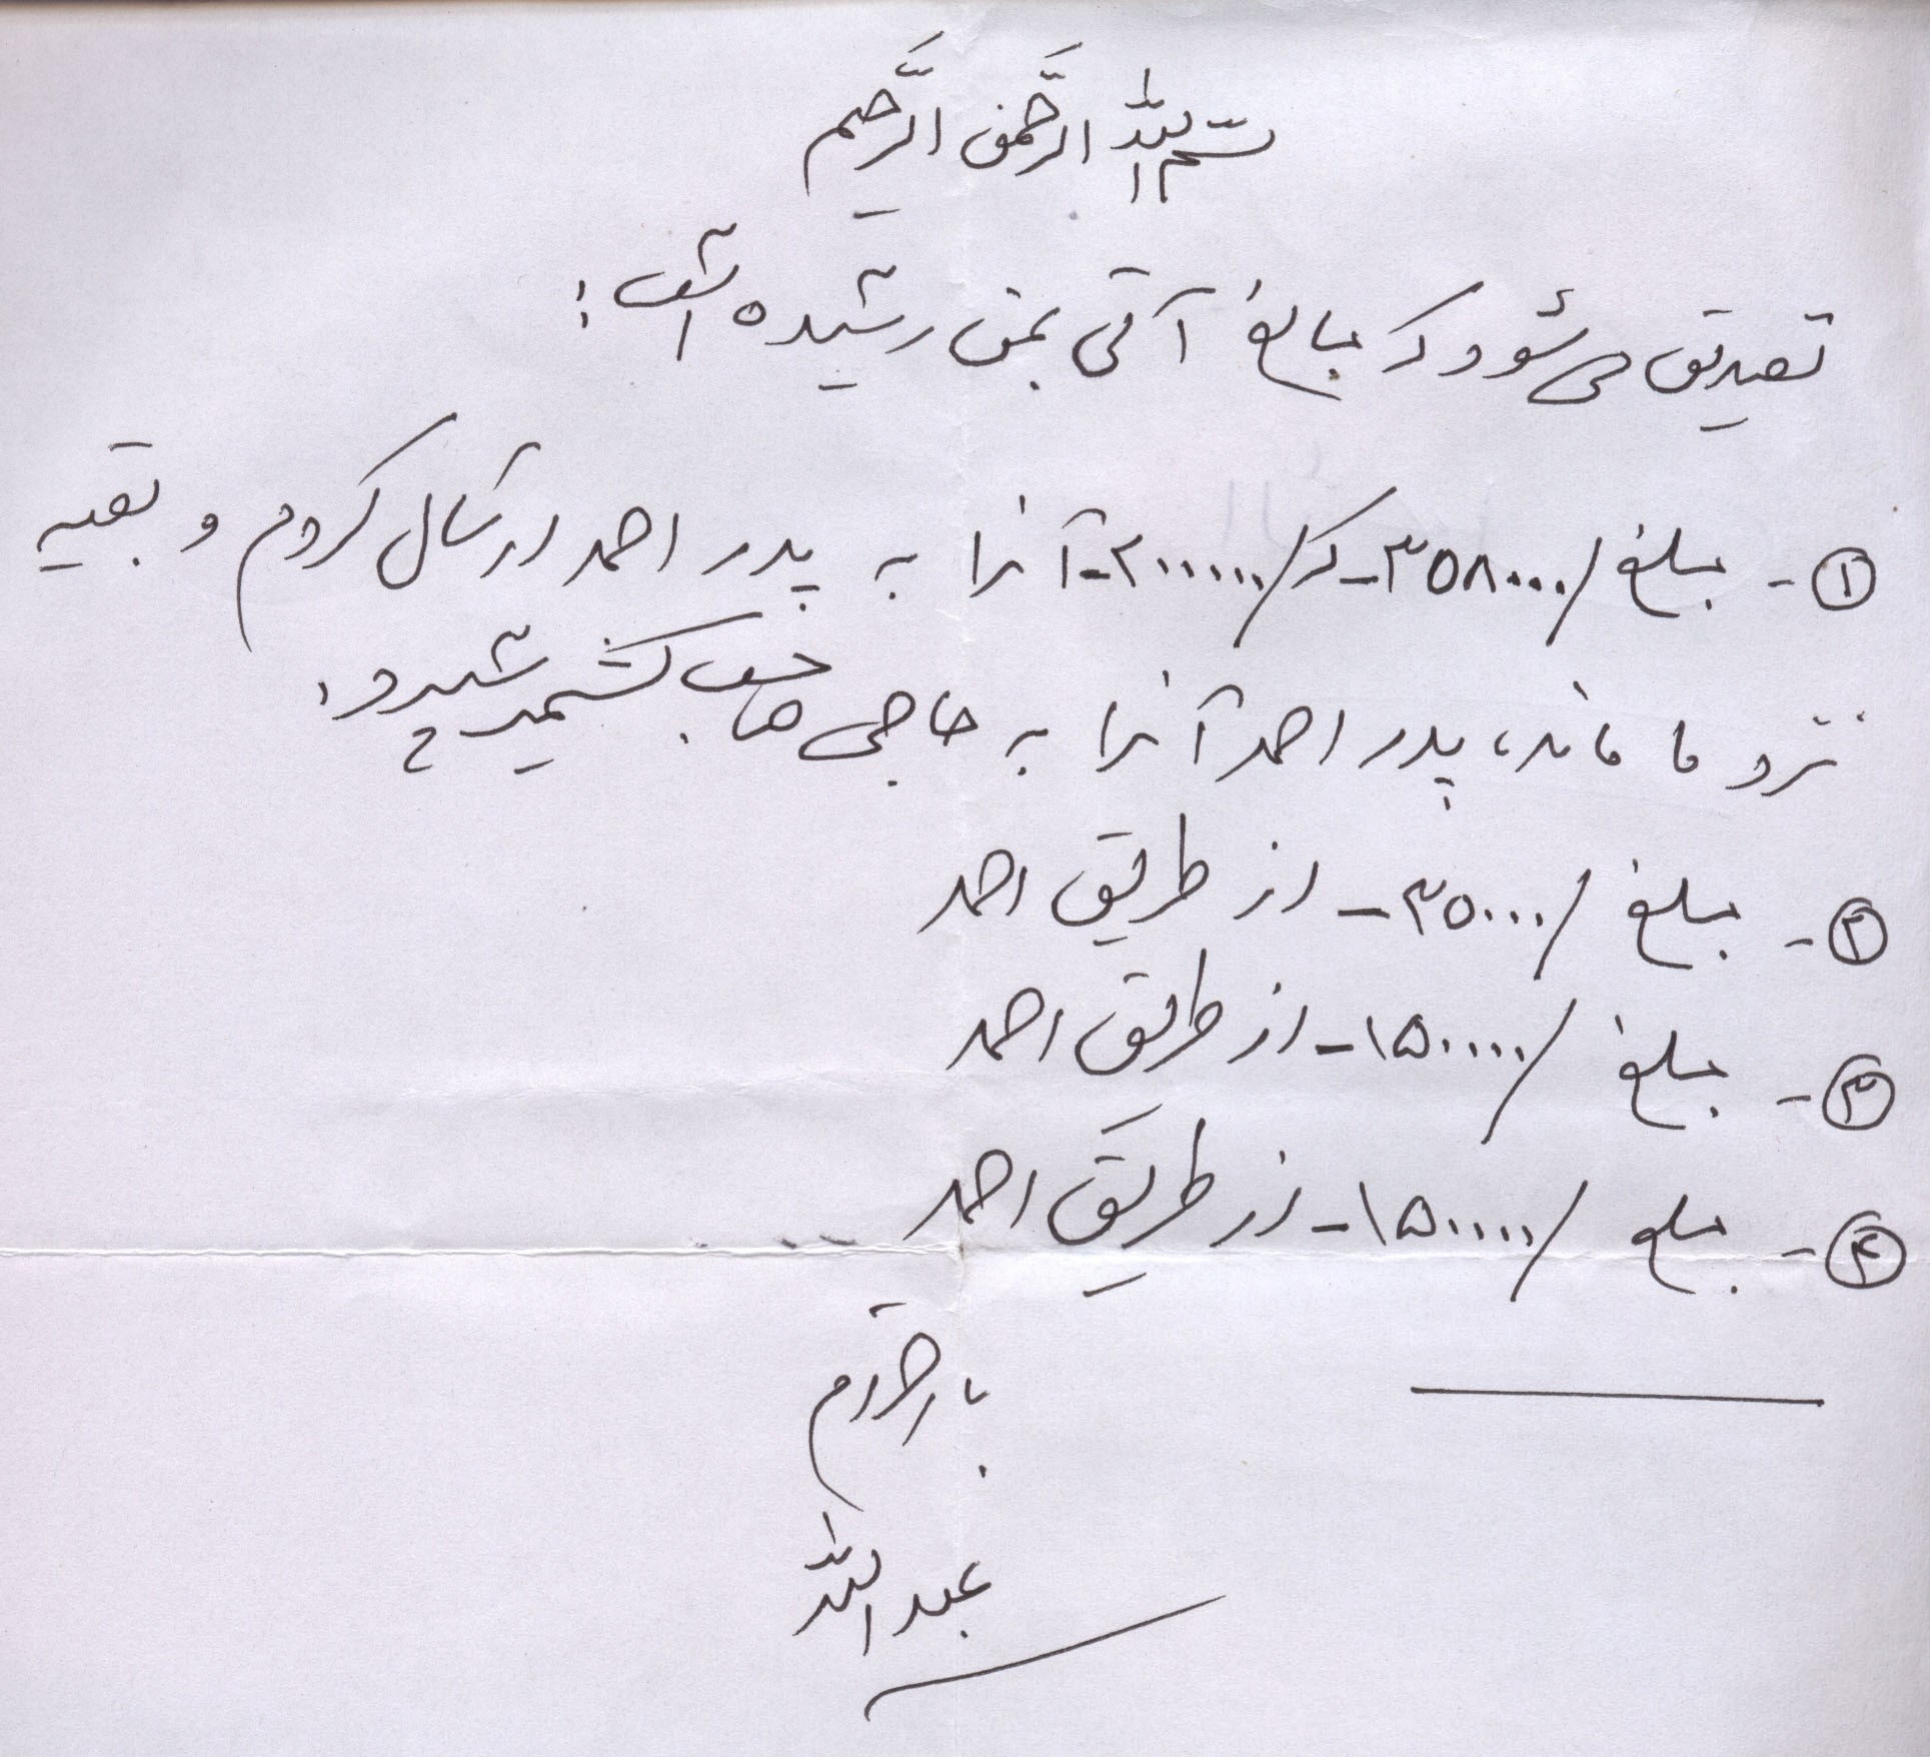 بسم الله الرَّحمن الرَّحیم
تصدیق می شود که مبالغ آتی بمن رسیده است:
①- مبلغ /۳۵۸۰۰۰- که /۲۰۰۰۰۰۰- آنرا به پدر احمد ارسال کردم و بقیه
نزد ما ماند، پدر احمد آنرا به حاجی صاحب کشمیر سپرد.
②- مبلغ /۳۵۰۰۰- از طریق احمد
③- مبلغ /۱۵۰۰۰۰- از طریق احمد
④- مبلغ /۱۵۰۰۰۰- از طریق احمد
با احترام
عبدالله